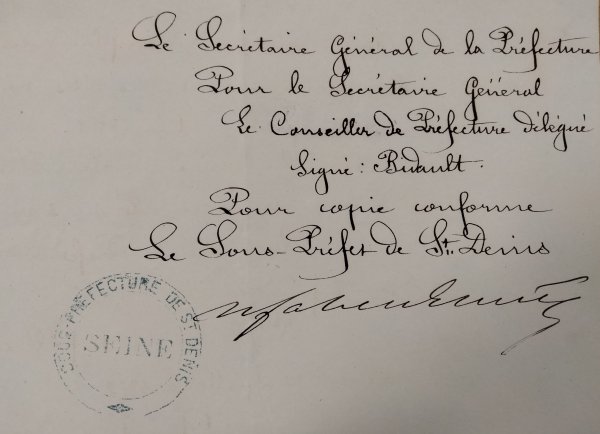 Le Secrétaire Général de la Préfecture
Pour le Secrétaire Général
Le Conseiller de Préfecture délégué
Signé : Bidault.
Pour copie conforme
Le Sous-Préfet de St. Denis
SOUS-PREFECTURE DE ST DENIS
SEINE